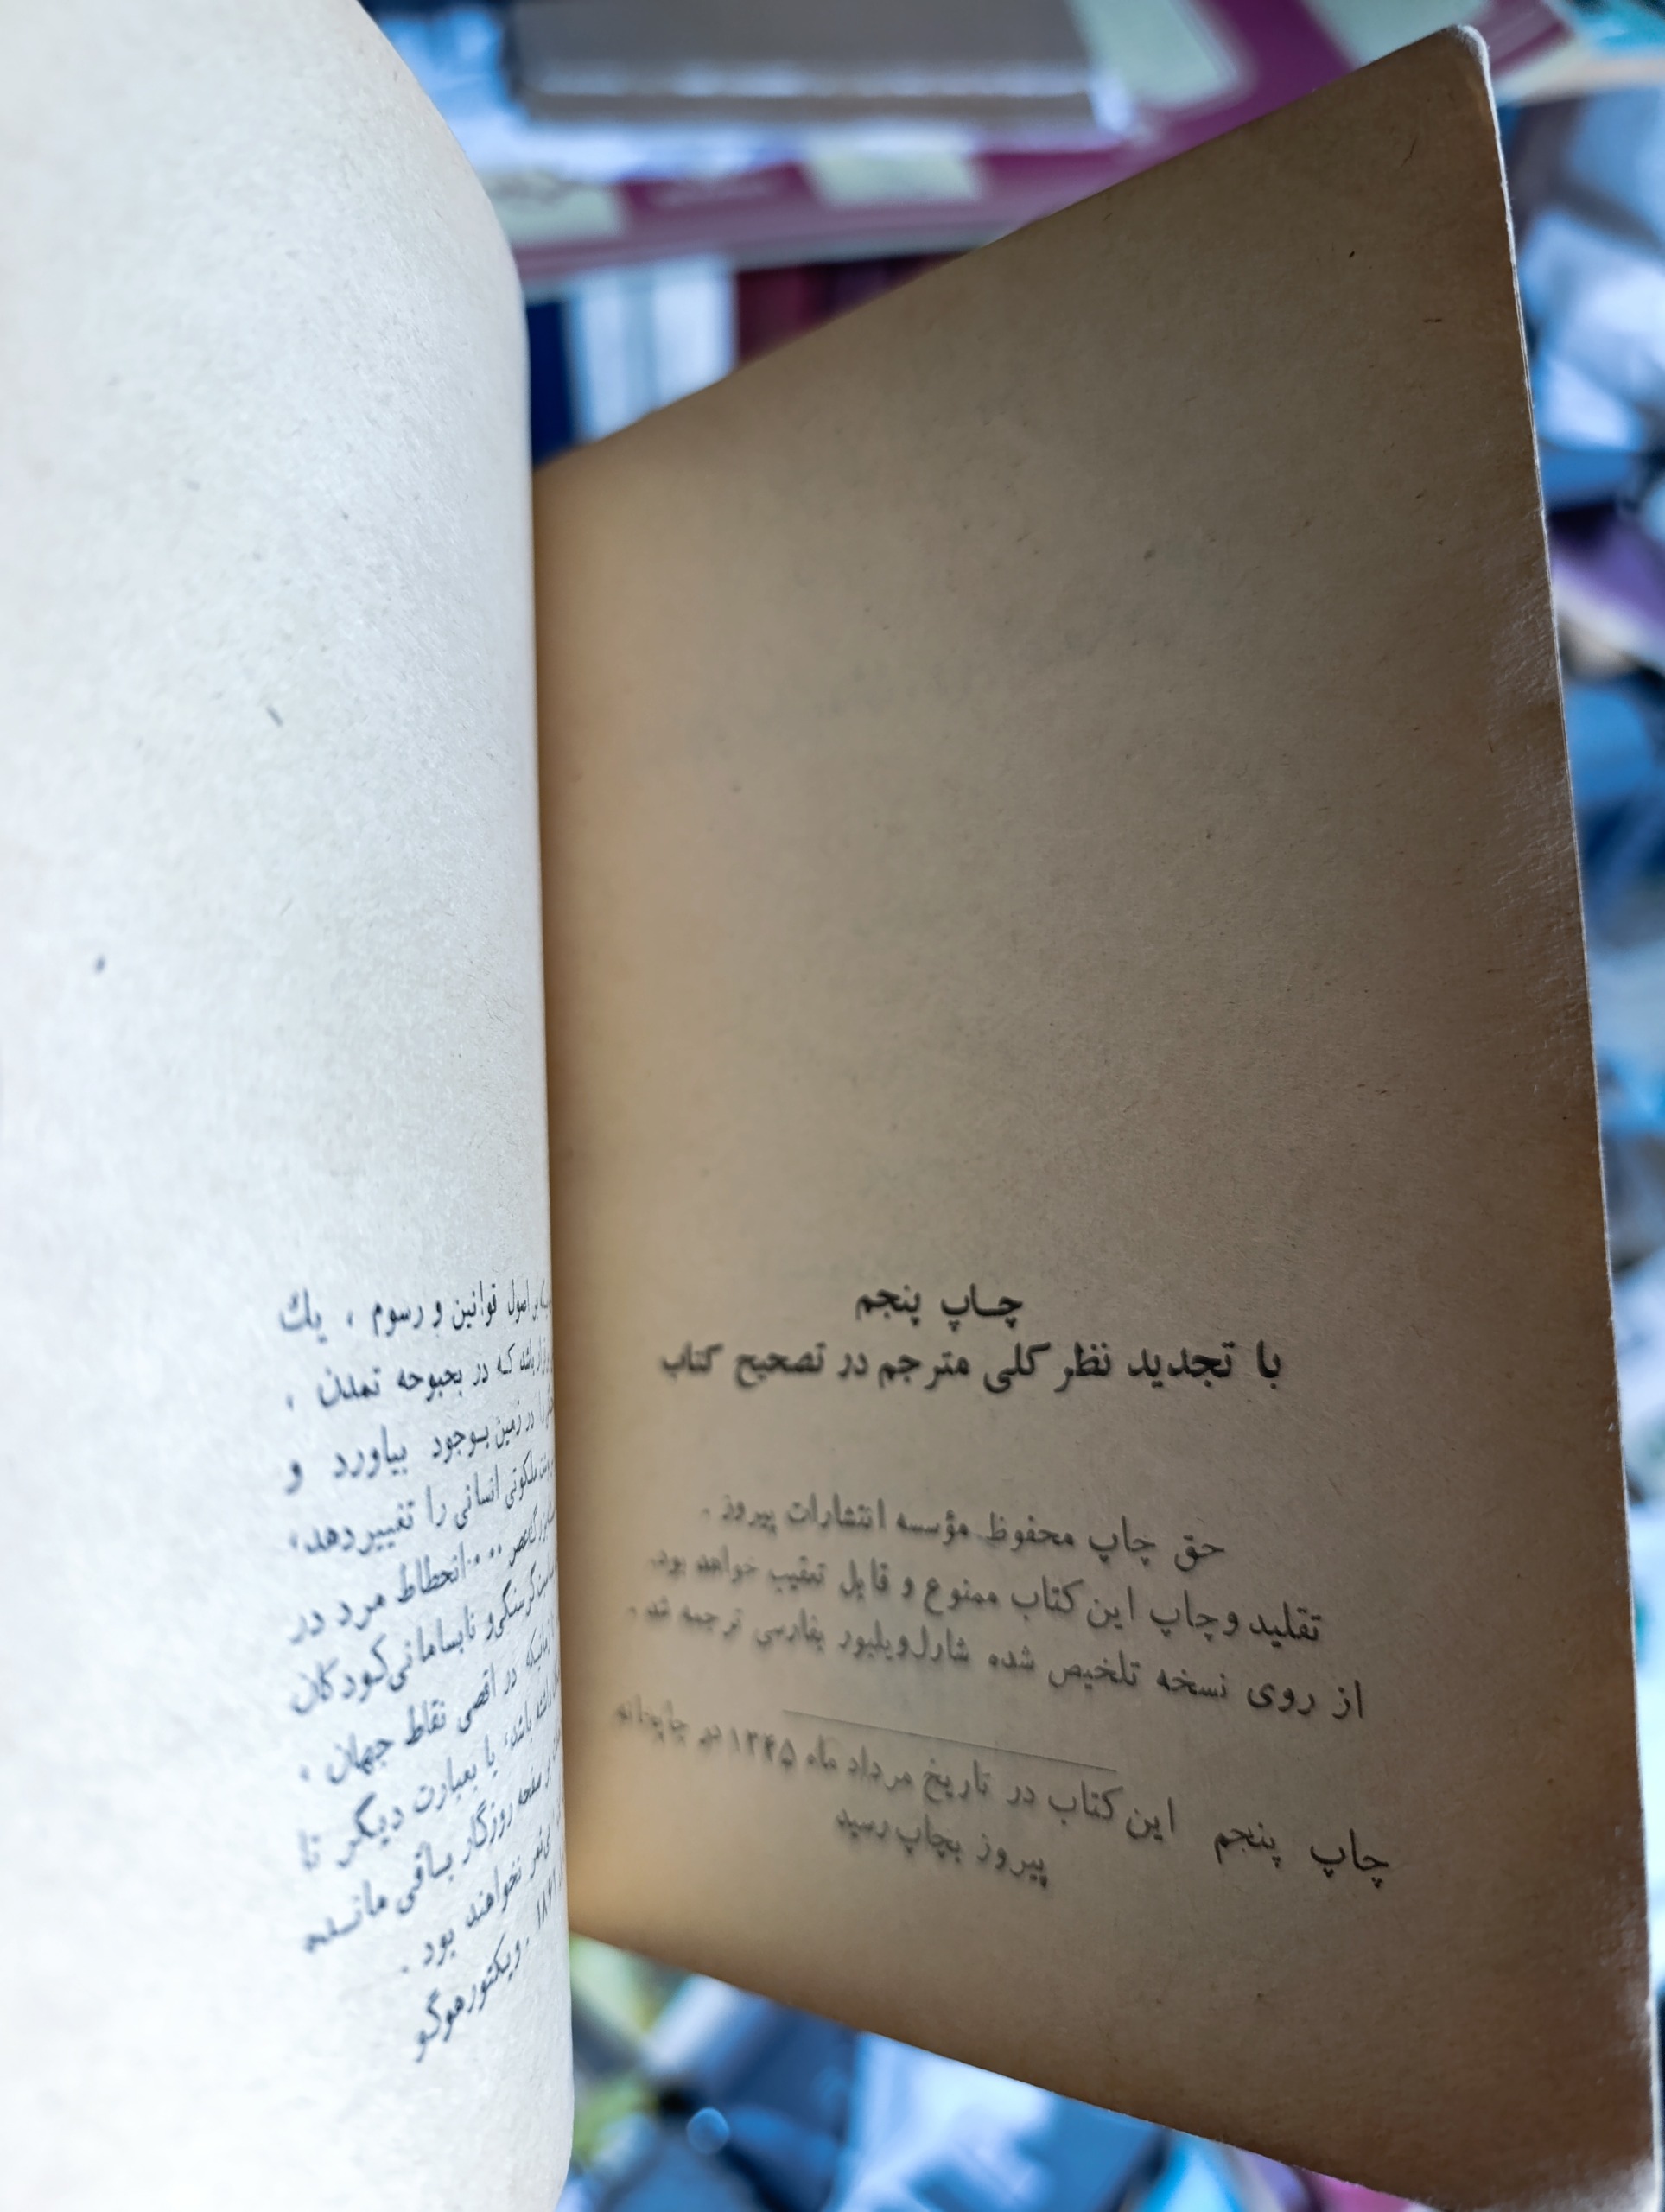 چاپ پنجم
با تجدید نظر کلی مترجم در تصحیح کتاب
حق چاپ محفوظ مؤسسه انتشارات پیروز .
تقلید و چاپ این کتاب ممنوع و قابل تعقیب خواهد بود.
از روی نسخه تلخیص شده شارل ویلبور بفارسی ترجمه شد .
چاپ پنجم این کتاب در تاریخ مرداد ماه ۱۳۴۵ در چاپخانه
پیروز بچاپ رسید
اصول قوانین و رسوم ، یك
باشد که در بحبوحه تمدن ،
در زمین بوجود بیاورد و
ملکوتی انسانی را تغییر دهد،
عصر ... انحطاط مرد در
گرسنگی و نابسامانی کودکان
در اقصی نقاط جهان ،
باشد، یا بعبارت دیگر تا
صفحه روزگار باقی مانده
نخواهند بود .
ویکتور هوگو